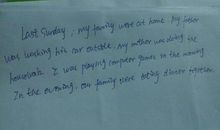 Last Sunday, my family were at home. My father
was washing his car outside. My mother was doing the
housework. I was playing computer games in the morning
In the evening, our family were eating dinner together.